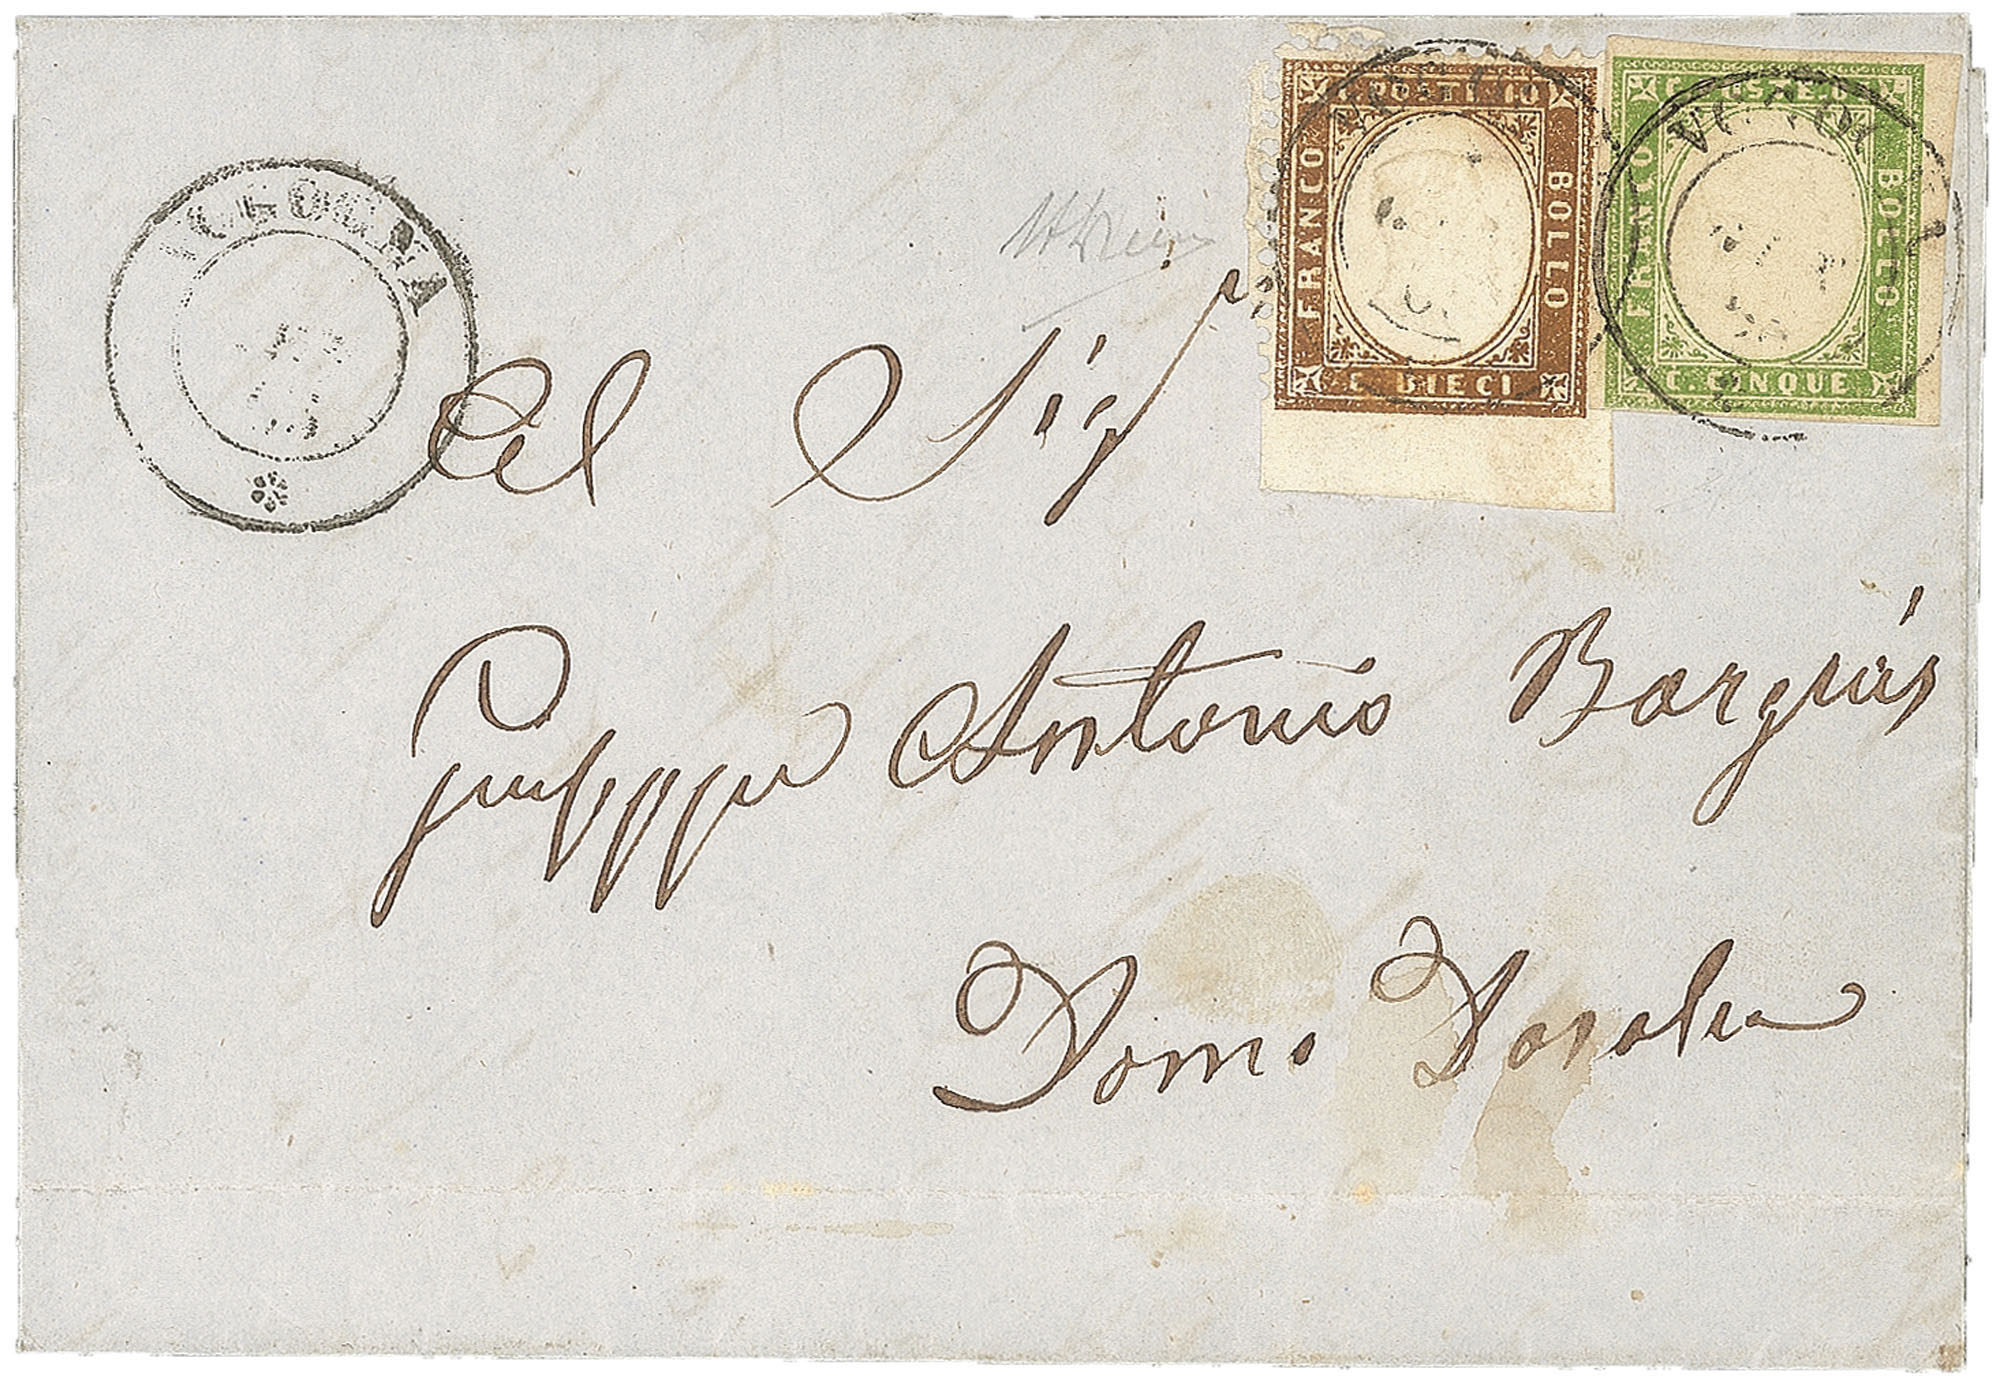 C. POSTE 10
FRANCO
BOLLO
C. DIECI
C. POSTE
FRANCO
BOLLO
C. CINQUE
VOGOGNA
Al Sigr
Giuseppe Antonio Borgnis
Domo Dossola